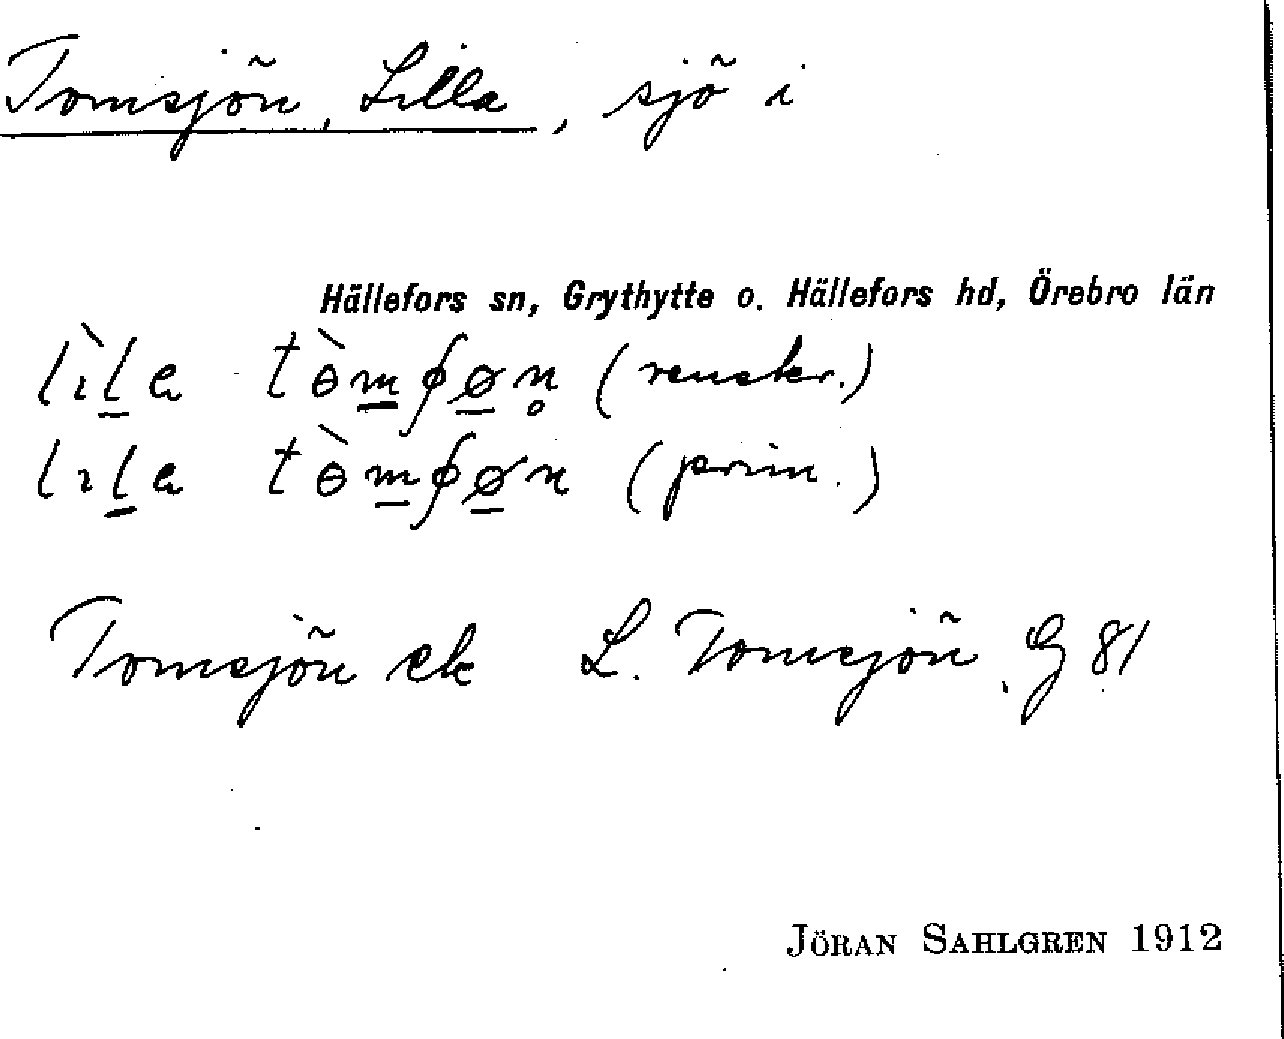 Tomsjön, Lilla, sjö i
Hällefors sn, Grythytte o. Hällefors hd, Örebro län
lı̀l̲a tɵ̀m̲ʃø̲n̥ (renskr.)
lıl̲a tɵ̀m̲ʃø̲n (prim.)
Tomsjön ek L. Tomsjön, G 81
JÖRAN SAHLGREN 1912